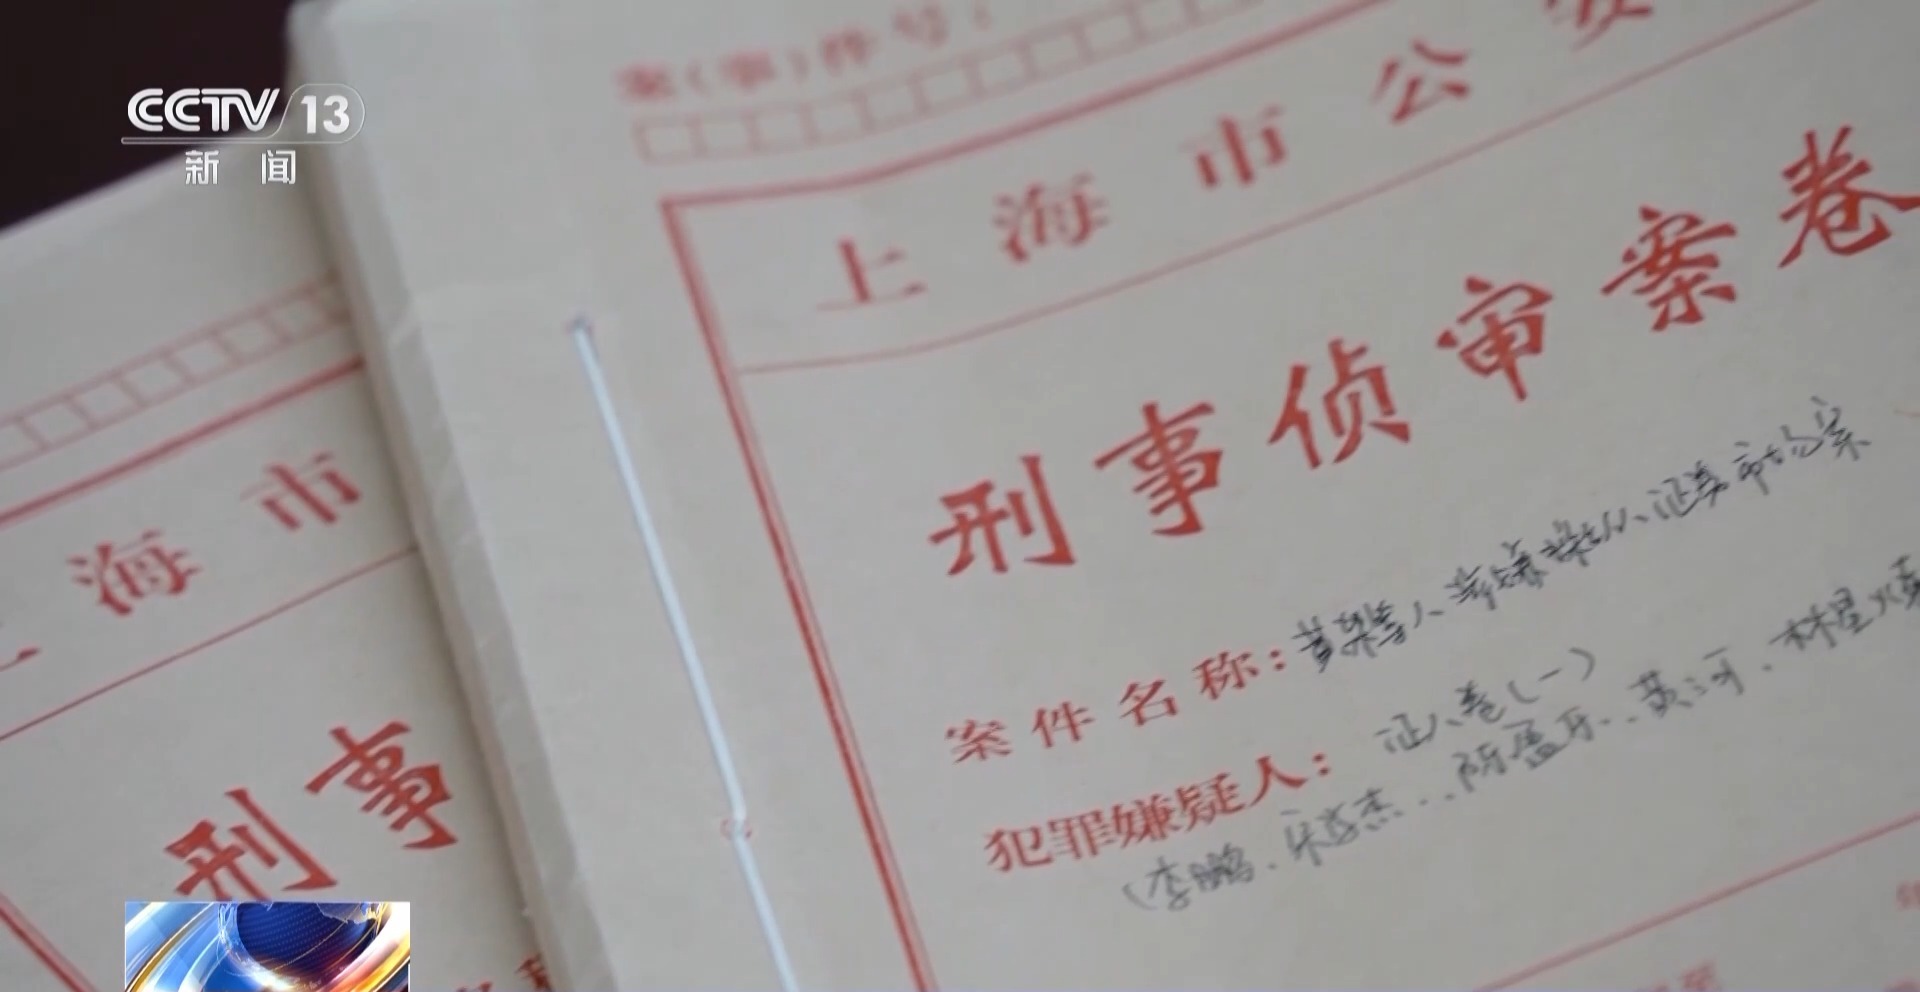 CCTV 13
新闻
案(事)件号:
上海市公安
刑事侦审案卷
案件名称:黄某等人涉嫌操纵证券市场案
证人卷(一)
犯罪嫌疑人:
(李鹏、宋学杰、陈盈乐、黄河、林星
上海市
刑事